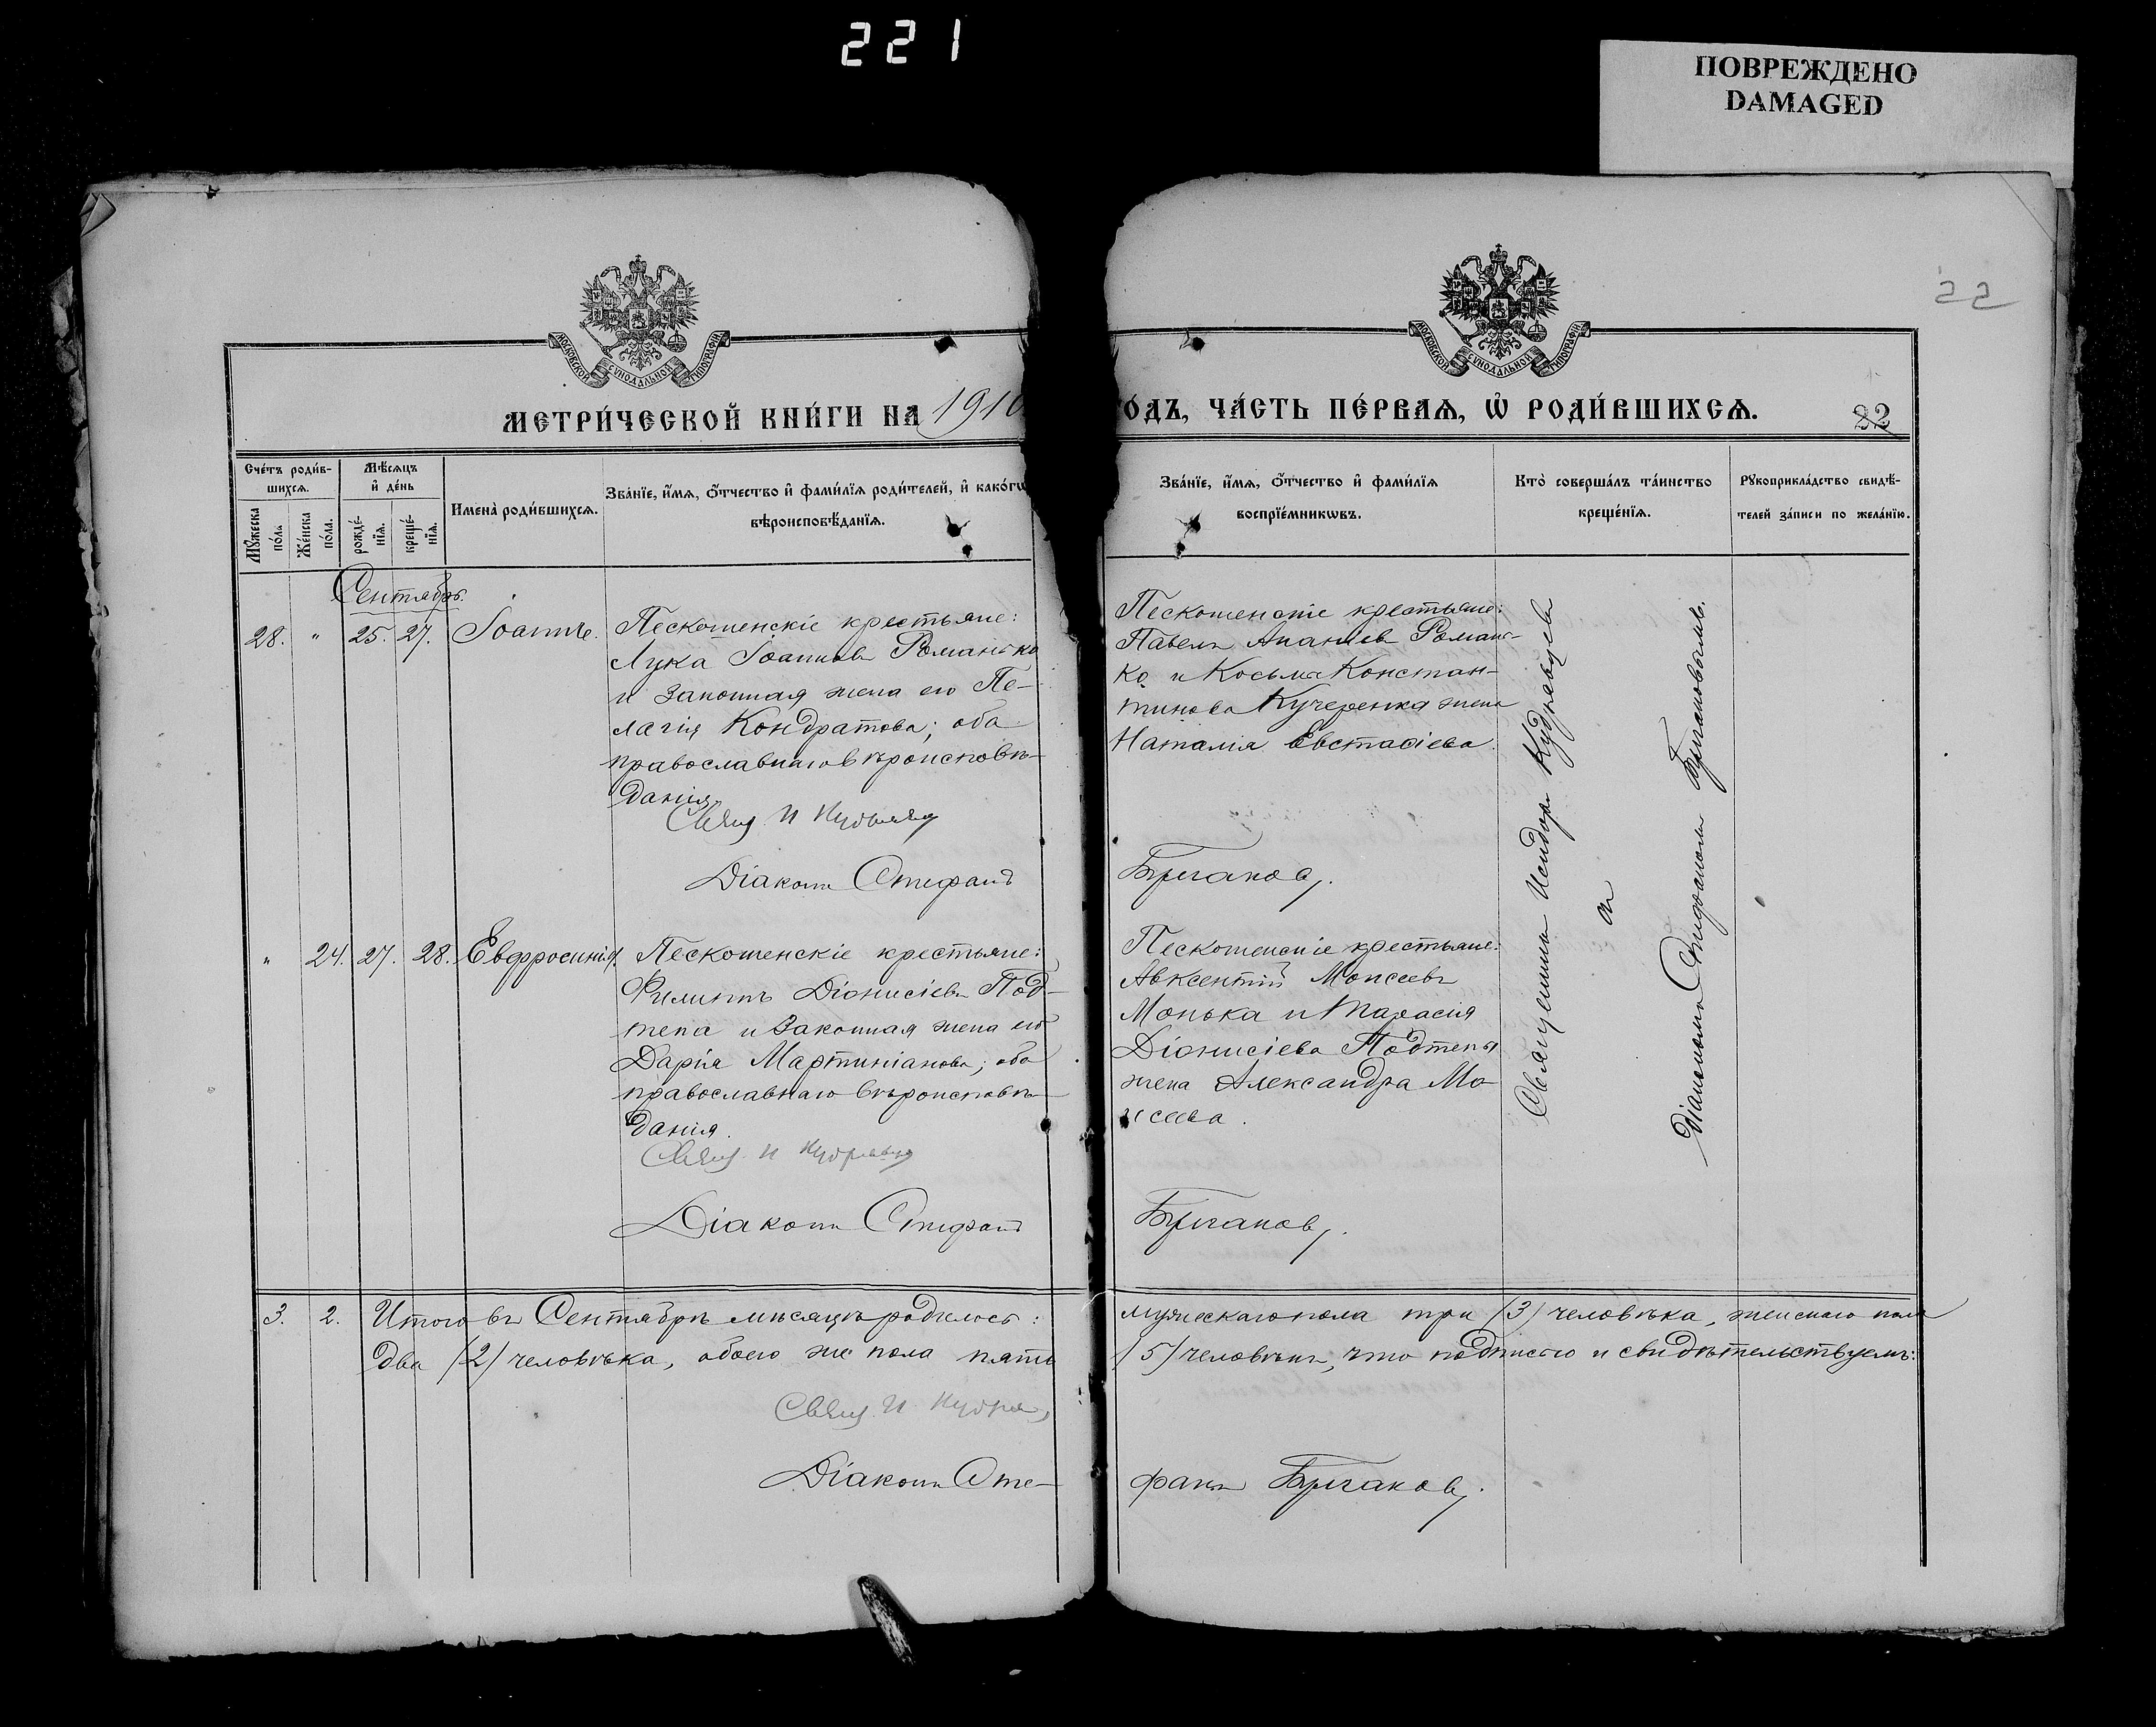 221
ПОВРЕЖДЕНО
DAMAGED
22
МОСКОВСКОЙ СѴНОДАЛЬНОЙ ТИПОГРАФІИ
МОСКОВСКОЙ СѴНОДАЛЬНОЙ ТИПОГРАФІИ
МЕТРИ́ЧЕСКОЙ КНИ́ГИ НА 1910
О́ДЪ, ЧА́СТЬ ПЕ́РВАѦ, Ѡ҆ РОДИ́ВШИХСѦ.
22
Счє́тъ роди́в-
шихсѧ.
Мꙋ́жеска по́лъ
Же́нска по́ла.
Мѣ́сѧцъ
и҆ де́нь
рожде́-
нїѧ.
креще́-
нїѧ.
Имена̀ роди́вшихсѧ.
Зва́нїе, и҆́мѧ, ѻ҆́тчество и҆ фами́лїѧ роди́телей, и҆ како́гѡ
вѣроисповѣ́данїѧ.
Зва́нїе, и҆́мѧ, ѻ҆́тчество и҆ фами́лїѧ
воспрїе́мникѡвъ.
Кто̀ соверша́лъ та́инство
креще́нїѧ.
Рꙋкоприкла́дство свидѣ́-
телей за́писи по жела́нїю.
Сентябрь.
28. " 25. 27. Іоаннъ.
Пескошенскіе крестьяне:
Лука Іоаннов Романько
и законная жена его Пе-
лагія Кондратова; оба
православнаго вѣроисповѣ-
данія.
Свящ. И Кудрявц
Діаконъ Стефанъ
Пескошенскіе крестьяне:
Павелъ Ананіев Романь-
ко и Косьма Констан-
тинова Кучеренка жена
Наталія Евстафіева.
Булгаков.
Священник Исидор Кудрявцев
с
Діаконом Стефаном Булгаковымъ.
" 24. 27. 28. Евфросинія.
Пескошенскіе крестьяне:
Филиппъ Діонисіев Под-
тепа и законная жена его
Дарія Мартиніанова; оба
православнаго вѣроисповѣ-
данія.
Свящ. И Кудрявцев
Діаконъ Стефанъ
Пескошенскіе крестьяне:
Авксентій Моисеевъ
Монька и Тарасія
Діонисіева Подтепы
жена Александра Мо-
исеева.
Булгаков.
3. 2. Итого въ Сентябрѣ мѣсяцѣ родилось:
мужескаго пола три /3/ человѣка, женскаго пола
два /2/ человѣка, обоего же пола пять
/5/ человѣкъ, что подписью и свидѣтельствуемъ:
Свящ. И Кудря
Діаконъ Сте-
фанъ Булгаков.